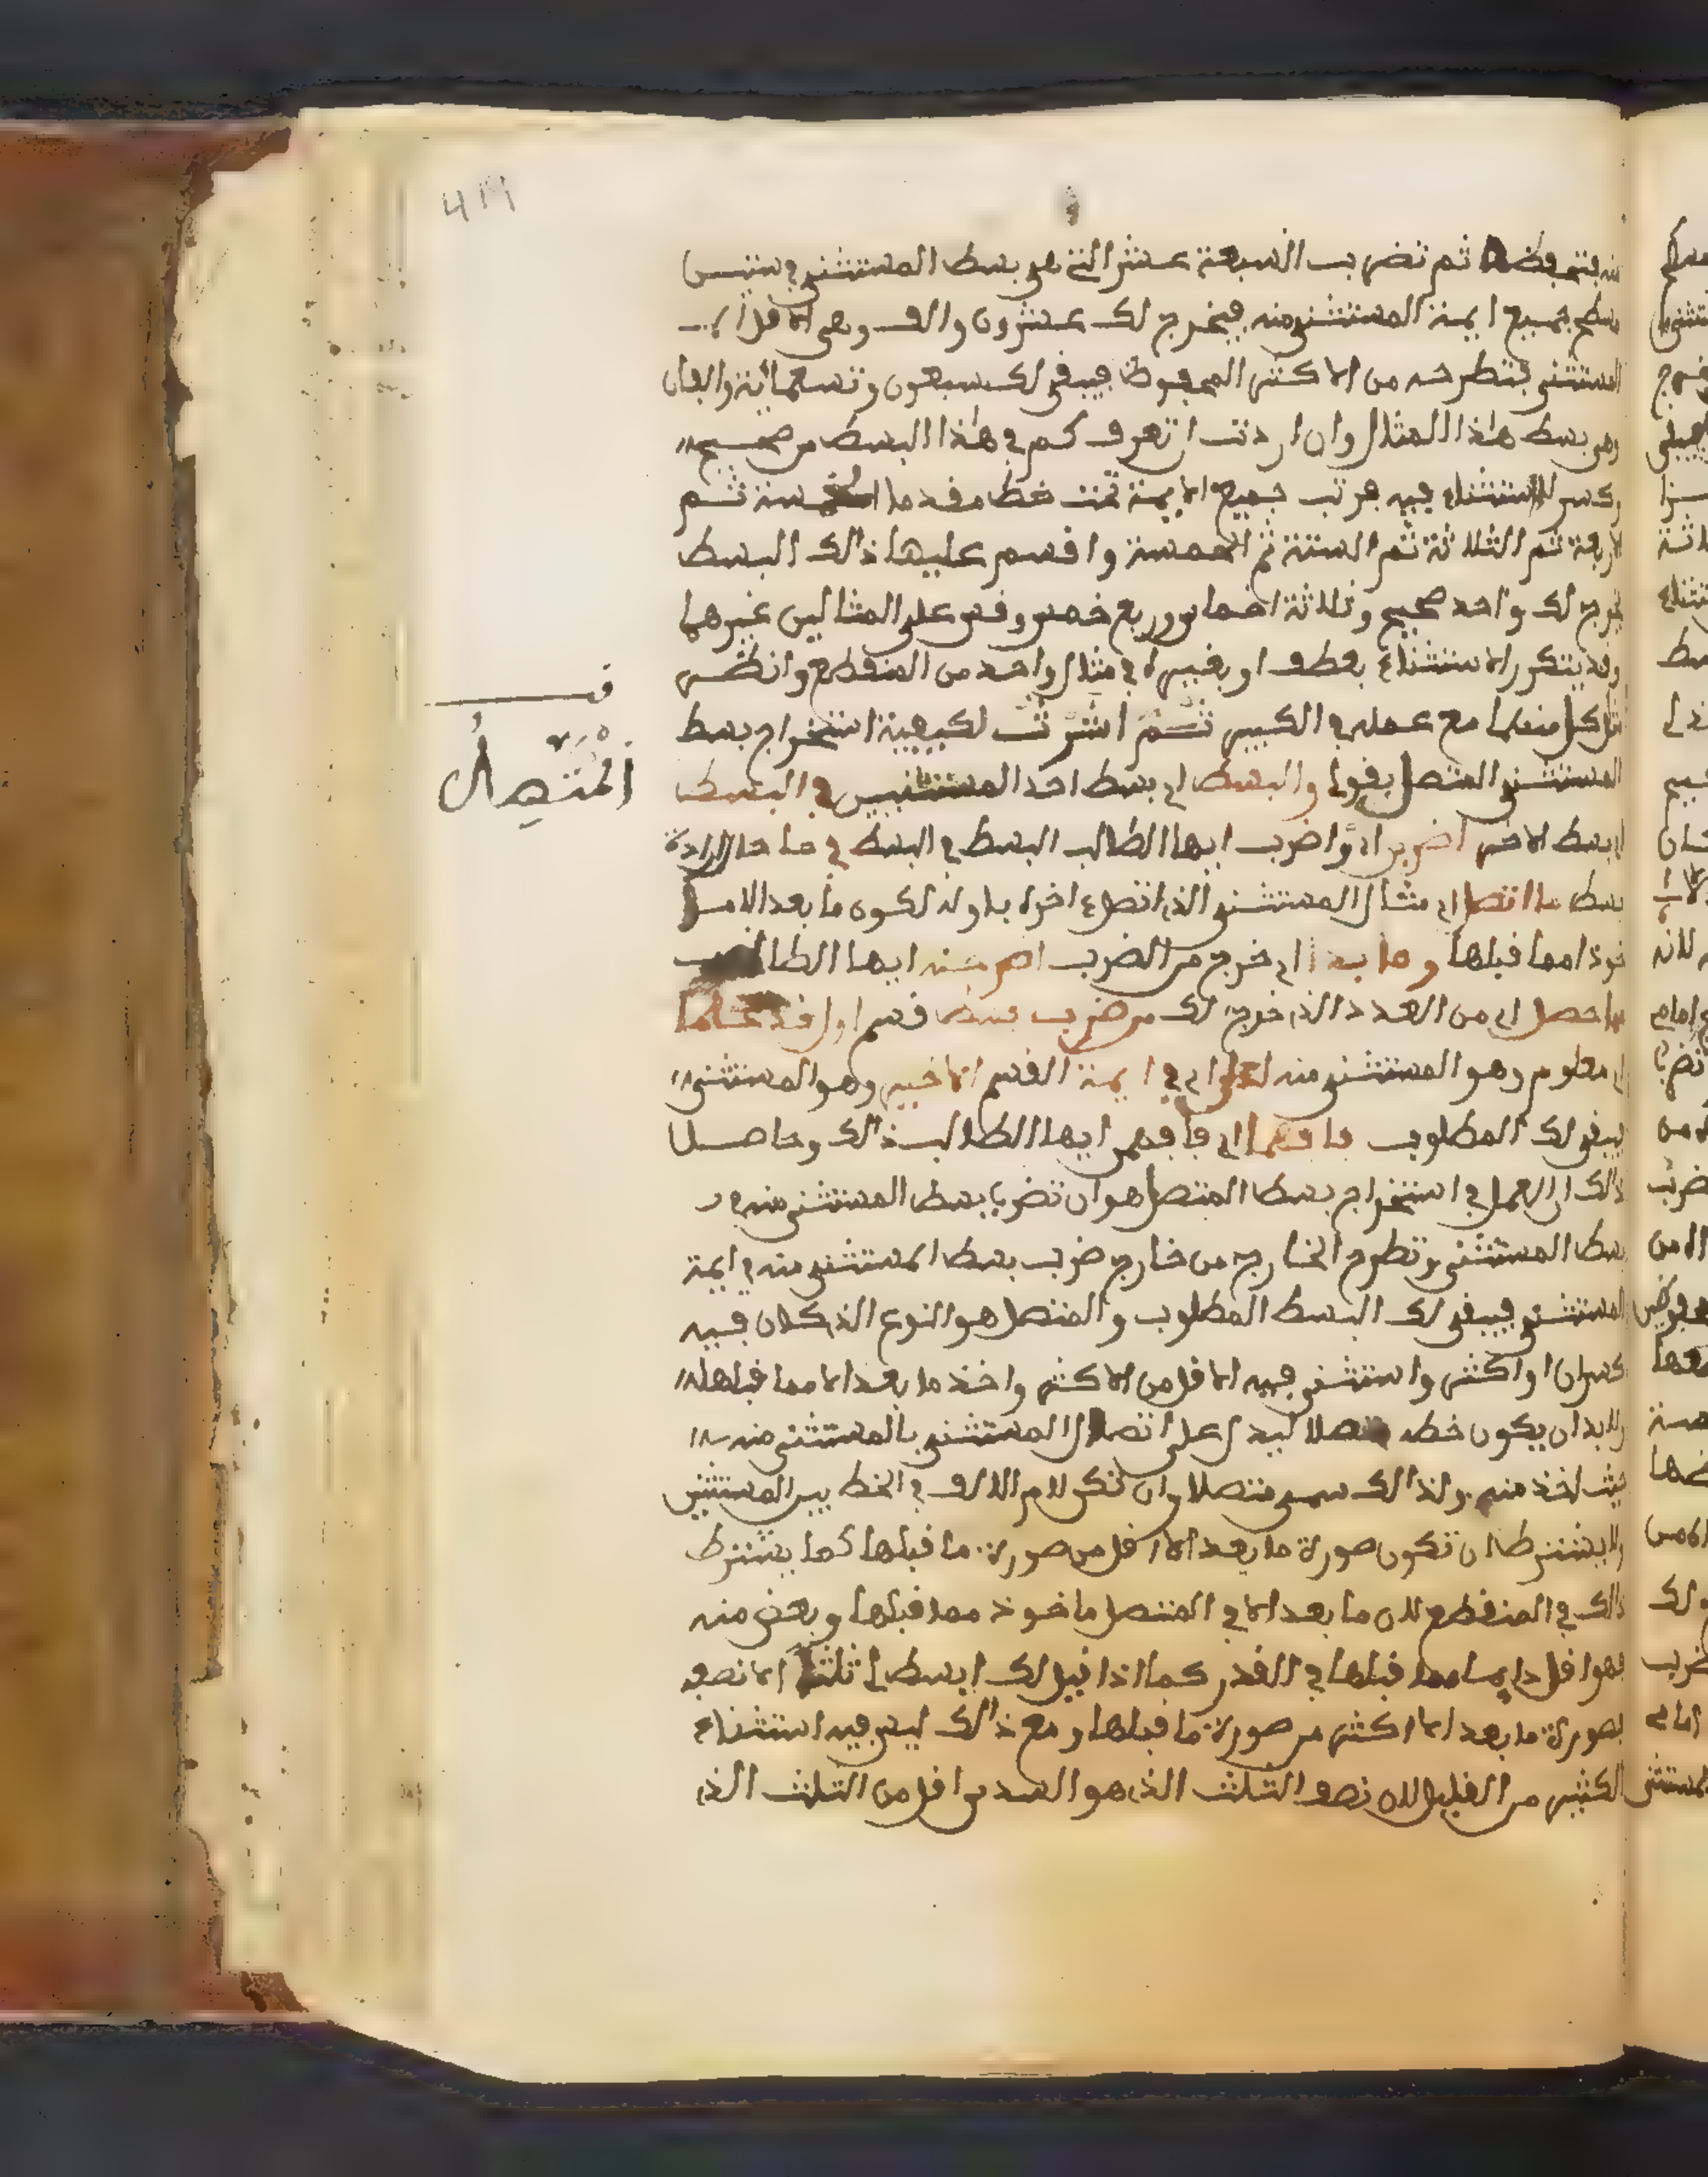 منه فتحفظه ثم تضرب السبعة عشر التي هي بسط المستثنى في ستين
مسطح جميع ايمة المستثنى منه فيخرج لك عشرون والف وهي الاقل اي
المستثنى فتطرحه من الاكثر المحفوظ فيبقى لك سبعون وتسعمائة والفان
وهي بسط هاذا المثال وان اردت ان تعرف كم في هاذا البسط من صحيح
وكسر للاستثناء فيه فرتب جميع الايمة تحت خط مقدما الخمسة ثم
الاربعة ثم الثلاثة ثم الستة ثم الخمسة واقسم عليها ذالك البسط
يخرج لك واحد صحيح وثلاثة اخماس وربع خمس وقس على المثالين غيرهما
وقد يتكرر الاستثناء بعطف او بغيره في مثال واحد من المنقطع وانظر
مثل كل منهما مع عمله في الكبير ثم اشرت لكيفية استخراج بسط
المستثنى المتصل بقولي والبسط اي بسط احد المستثنيين في البسط
اي بسط الاخر اضربن اي واضرب ايها الطالب البسط في البسط في حال ارادة
بسط ما اتصل اي مثال المستثنى الذي اتصل اخره باوله لكون ما بعد الا ما
خوذا مما قبلها وما بدا اي خرج من الضرب اطرحنه ايها الطالب
مما حصل اي من العدد الذي خرج لك من ضرب بسط قسم اول قد علما
اي معلوم وهو المستثنى منه اي في ايمة القسم الاخير وهو المستثنى
يبقى لك المطلوب فافهما اي فافهمن ايها الطالب ذالك وحاصل
ذالك ان العمل في استخراج بسط المتصل هو ان تضرب بسط المستثنى منه في
بسط المستثنى وتطرح الخارج من خارج ضرب بسط المستثنى منه في ايمة
المستثنى فيبقى لك البسط المطلوب والمتصل هو النوع الذي كان فيه
كسران او اكثر واستثنى فيه الاقل من الاكثر واخذ ما بعد الا مما قبلها
ولابد ان يكون خطه متصلا ليدل على اتصال المستثنى بالمستثنى منه
حيث اخذ منه ولذالك سمى متصلا وان تكن لام الالف في الخط بين المستثنين
ولا يشترط ان تكون صورة ما بعد الا اقل من صورة ما قبلها كما يشترط
ذالك في المنقطع لان ما بعد الا في المتصل ماخوذ مما قبلها وبعض منه
فهو اقل دايما مما قبلها في القدر كما اذا قيل لك ابسط لي ثلثا الا نصفه
فصورة ما بعد الا اكثر من صورة ما قبلها ومع ذالك ليس فيه استثناء
الكثير من القليل لان نصف الثلث الذي هو السدس اقل من الثلث الذي
قف
المتصل